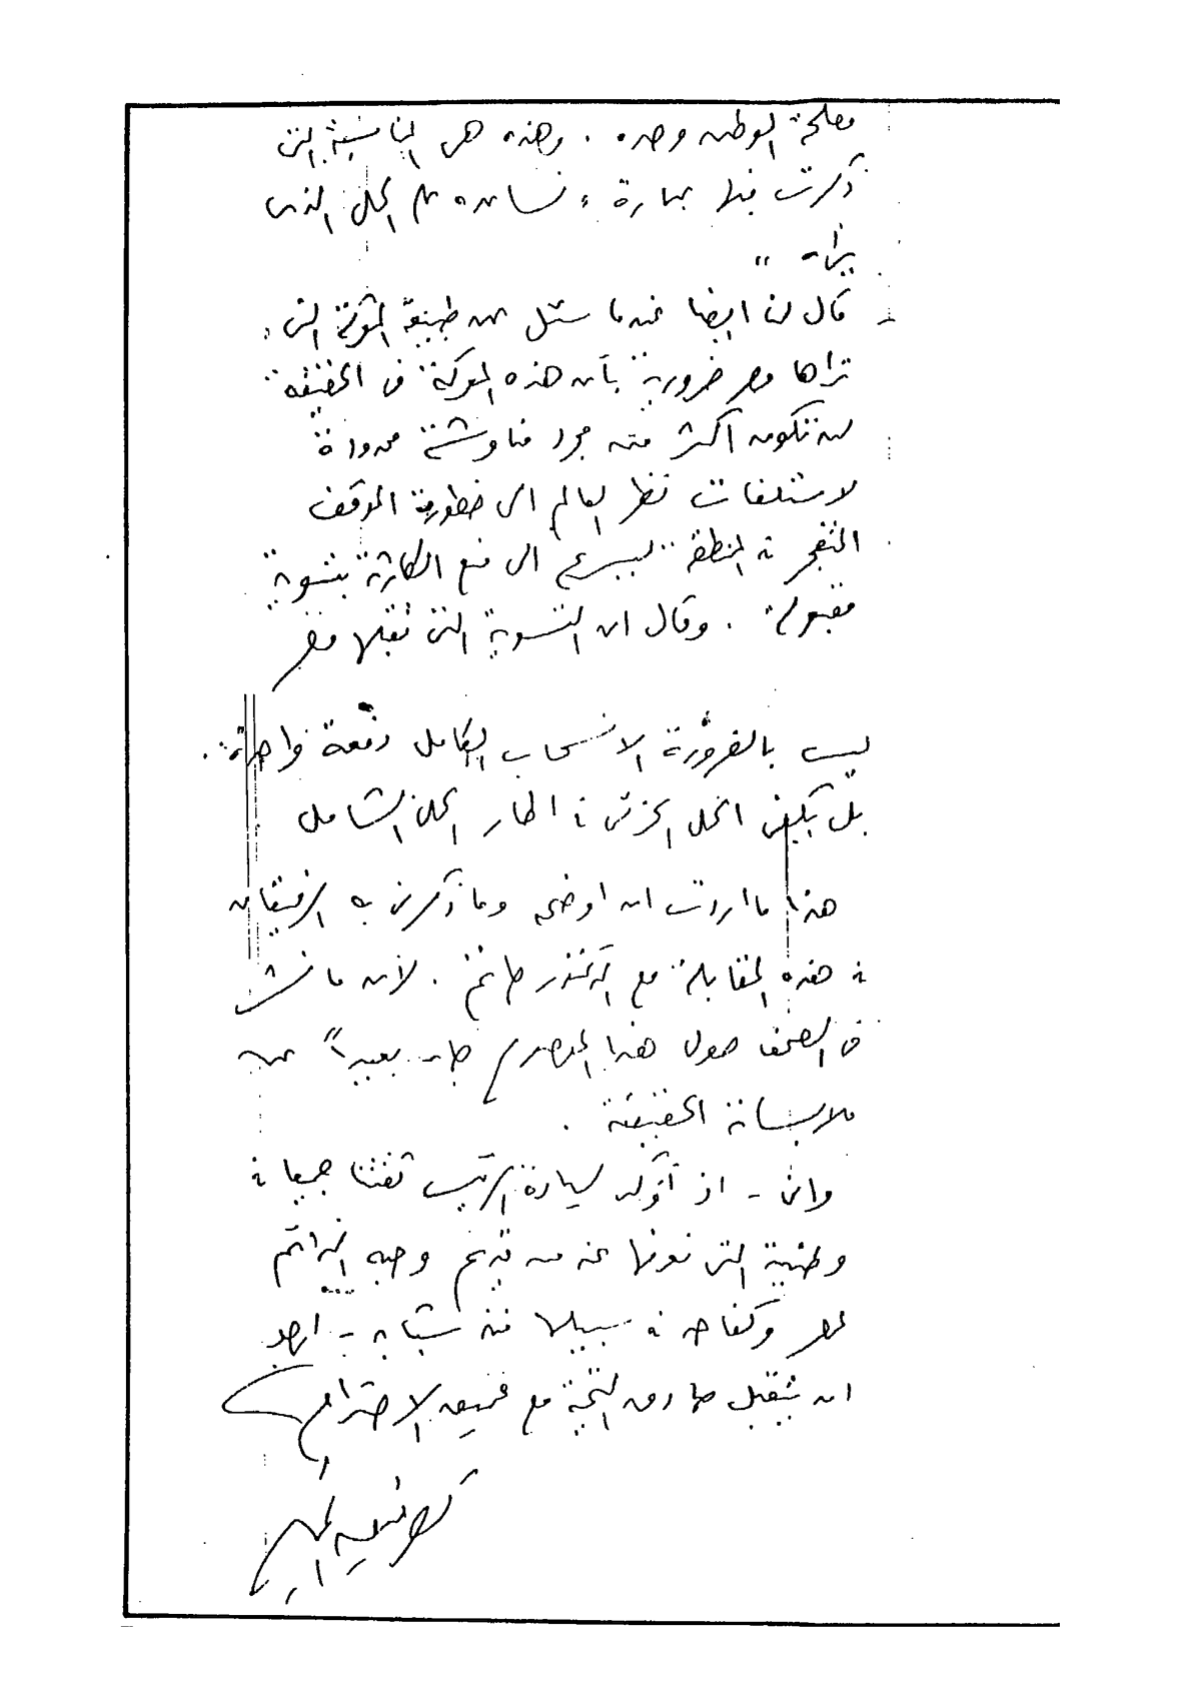 مصلحة الوطن وحده . وهذه هى المناسبة التى
ذكرت فيها عبارة " نسانده فى الحل الذى
يراه "
قال لنا ايضا عندما سئل عن طبيعة المعركة التى
تراها مصر ضرورية بأن هذه المعركة فى الحقيقة
لن تكون أكثر من مجرد مناوشة محدودة
لاستلفات نظر العالم الى خطورة الموقف
المتفجر فى المنطقة ليسرع الى منع الكارثة بتسوية
مقبولة . وقال ان التسوية التى تقبلها مصر
ليست بالضرورة الانسحاب الكامل دفعة واحدة .
بل يكفى الحل الجزئى فى اطار الحل الشامل
هذا ما اردت ان اوضحه وما ذكرنى به الرفيقان
فى هذه المقابلة مع الدكتور حاتم . لأن ما نشر
فى الصحف حول هذا الموضوع جاء بعيداً عن
ملابساته الحقيقية .
وانى - اذ أؤكد لسيادة الرئيس ثقتنا جميعا فى
وطنيته التى نعرفها عنه من قديم وحبه الدائم
لمصر وكفاحه فى سبيلها منذ شبابه - ارجو
ان يتقبل صادق التحية مع عميق الاحترام
توفيق الحكيم